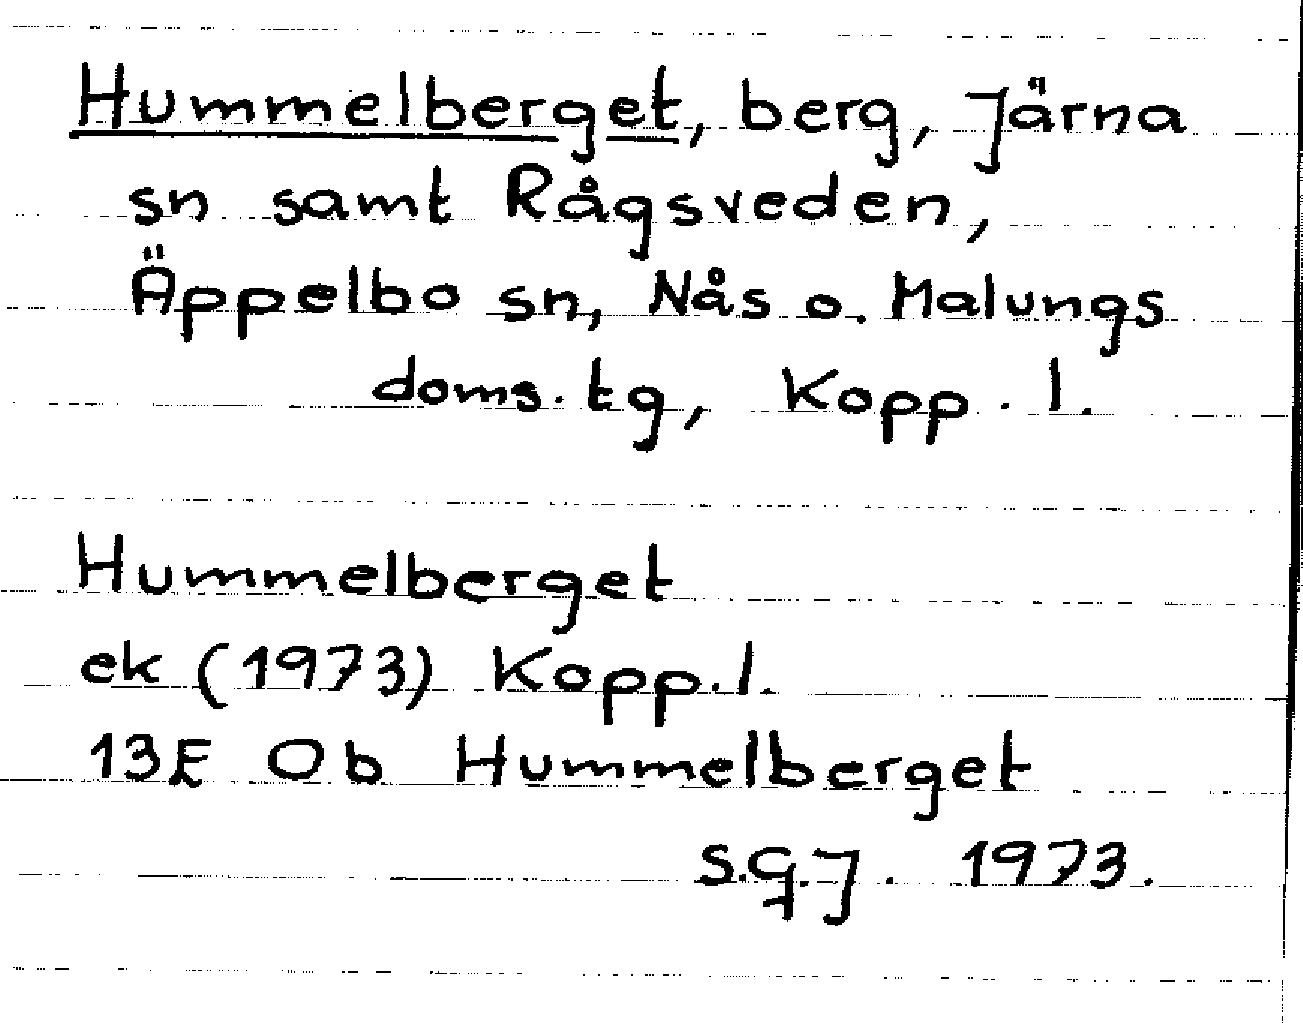 Hummelberget, berg, Järna
sn samt Rågsveden,
Äppelbo sn, Nås o. Malungs
doms. tg, Kopp. l.
Hummelberget
ek (1973) Kopp. l.
13E Ob Hummelberget
S.G.J. 1973.